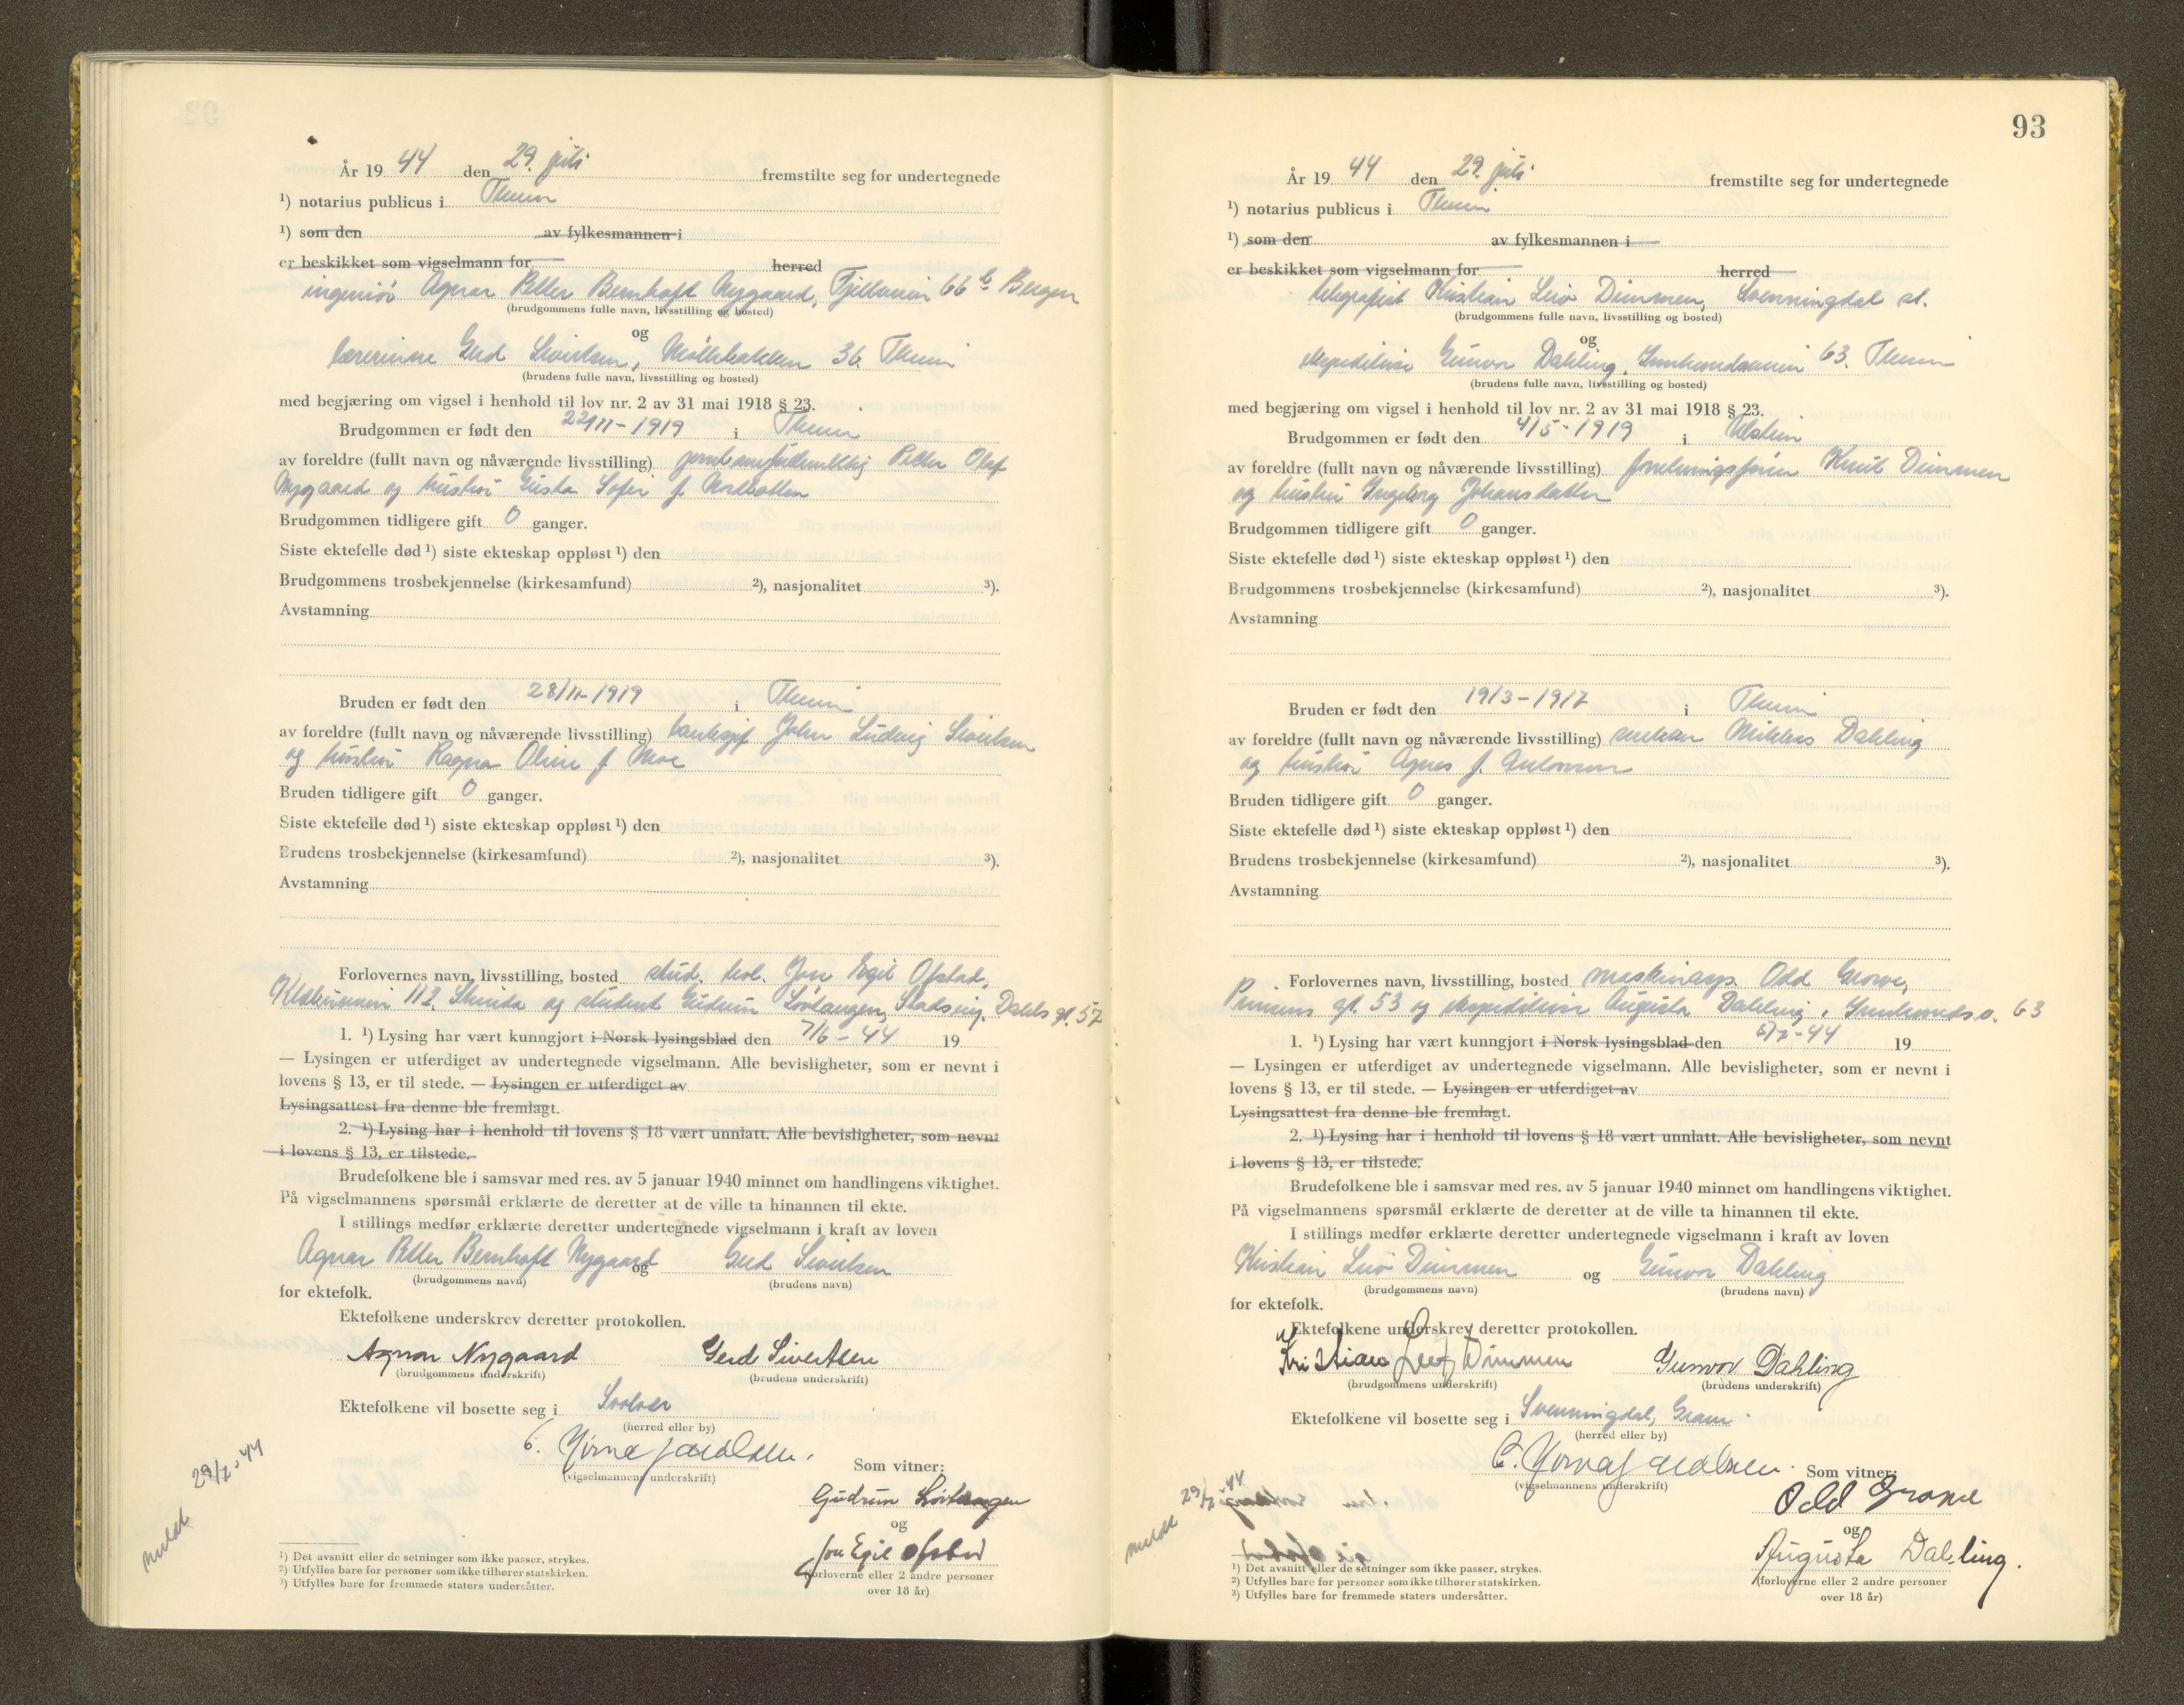 År 19 44 den 29. juli fremstilte seg for undertegnede
¹) notarius publicus i Theim
¹) som den av fylkesmannen i
er beskikket som vigselmann for herred
ingeniør Agnar Petter Bernhoft Nygaard, Fjellveien 66 b Bergen
(brudgommens fulle navn, livsstilling og bosted)
og
lærerinne Gerd Sivertsen, Møllebakken 36. Theim
(brudens fulle navn, livsstilling og bosted)
med begjæring om vigsel i henhold til lov nr. 2 av 31 mai 1918 § 23.
Brudgommen er født den 22/11-1919 i Theim
av foreldre (fullt navn og nåværende livsstilling) Petter Olaf
Nygaard og hustru Gusta Sofie f.
Brudgommen tidligere gift 0 ganger.
Siste ektefelle død ¹) siste ekteskap oppløst ¹) den
Brudgommens trosbekjennelse (kirkesamfund) ²), nasjonalitet ³).
Avstamning
Bruden er født den 28/11-1919 i Theim
av foreldre (fullt navn og nåværende livsstilling) banksjef John Ludvig Sivertsen
og hustru Ragna Oline f. Moe
Bruden tidligere gift 0 ganger.
Siste ektefelle død ¹) siste ekteskap oppløst ¹) den
Brudens trosbekjennelse (kirkesamfund) ²), nasjonalitet ³).
Avstamning
Forlovernes navn, livsstilling, bosted stud. Jon Egil Ofstad,
113, Strinda og student Gudrun Løvtangen, Stadsing. Dahls gt. 57
1. ¹) Lysing har vært kunngjort i Norsk lysingsblad den 7/6-44 19
— Lysingen er utferdiget av undertegnede vigselmann. Alle bevisligheter, som er nevnt i
lovens § 13, er til stede. — Lysingen er utferdiget av
Lysingsattest fra denne ble fremlagt.
2. ¹) Lysing har i henhold til lovens § 18 vært unnlatt. Alle bevisligheter, som nevnt
i lovens § 13, er tilstede.
Brudefolkene ble i samsvar med res. av 5 januar 1940 minnet om handlingens viktighet.
På vigselmannens spørsmål erklærte de deretter at de ville ta hinannen til ekte.
I stillings medfør erklærte deretter undertegnede vigselmann i kraft av loven
Agnar Petter Bernhoft Nygaard og Gerd Sivertsen
(brudgommens navn) (brudens navn)
for ektefolk.
Ektefolkene underskrev deretter protokollen.
Agnar Nygaard Gerd Sivertsen
(brudgommens underskrift) (brudens underskrift)
Ektefolkene vil bosette seg i Svolvær
(herred eller by)
C. Jacobsen.
(vigselmannens underskrift)
Som vitner:
Gudrun Løvtangen
og
Jon Egil Ofstad
(forloverne eller 2 andre personer
over 18 år)
meldt 29/7-44
¹) Det avsnitt eller de setninger som ikke passer, strykes.
²) Utfylles bare for personer som ikke tilhører statskirken.
³) Utfylles bare for fremmede staters undersåtter.
93
År 19 44 den 29. juli fremstilte seg for undertegnede
¹) notarius publicus i Theim
¹) som den av fylkesmannen i
er beskikket som vigselmann for herred
telegrafist Kristian Leiv Dimmen, Svenningdal st.
(brudgommens fulle navn, livsstilling og bosted)
og
ekspeditrise Gunvor Dahling, Innherredsveien 63. Theim
(brudens fulle navn, livsstilling og bosted)
med begjæring om vigsel i henhold til lov nr. 2 av 31 mai 1918 § 23.
Brudgommen er født den 4/5-1919 i Ulstein
av foreldre (fullt navn og nåværende livsstilling) forretningsfører Knut Dimmen
og hustru Ingeborg Johansdatter
Brudgommen tidligere gift 0 ganger.
Siste ektefelle død ¹) siste ekteskap oppløst ¹) den
Brudgommens trosbekjennelse (kirkesamfund) ²), nasjonalitet ³).
Avstamning
Bruden er født den 19/3-1917 i Theim
av foreldre (fullt navn og nåværende livsstilling) Dahling
og hustru Agnes f.
Bruden tidligere gift 0 ganger.
Siste ektefelle død ¹) siste ekteskap oppløst ¹) den
Brudens trosbekjennelse (kirkesamfund) ²), nasjonalitet ³).
Avstamning
Forlovernes navn, livsstilling, bosted maskinasp. Odd Grove,
Prinsens gt. 53 og ekspeditrise Augusta Dahling, Innherredsv. 63
1. ¹) Lysing har vært kunngjort i Norsk lysingsblad den 6/7-44 19
— Lysingen er utferdiget av undertegnede vigselmann. Alle bevisligheter, som er nevnt i
lovens § 13, er til stede. — Lysingen er utferdiget av
Lysingsattest fra denne ble fremlagt.
2. ¹) Lysing har i henhold til lovens § 18 vært unnlatt. Alle bevisligheter, som nevnt
i lovens § 13, er tilstede.
Brudefolkene ble i samsvar med res. av 5 januar 1940 minnet om handlingens viktighet.
På vigselmannens spørsmål erklærte de deretter at de ville ta hinannen til ekte.
I stillings medfør erklærte deretter undertegnede vigselmann i kraft av loven
Kristian Leiv Dimmen og Gunvor Dahling
(brudgommens navn) (brudens navn)
for ektefolk.
Ektefolkene underskrev deretter protokollen.
Kristian Leif Dimmen Gunvor Dahling
(brudgommens underskrift) (brudens underskrift)
Ektefolkene vil bosette seg i Svenningdal, Grane
(herred eller by)
C. Jacobsen.
(vigselmannens underskrift)
Som vitner:
Odd Grove
og
Augusta Dahling.
(forloverne eller 2 andre personer
over 18 år)
meldt 29/7-44
¹) Det avsnitt eller de setninger som ikke passer, strykes.
²) Utfylles bare for personer som ikke tilhører statskirken.
³) Utfylles bare for fremmede staters undersåtter.